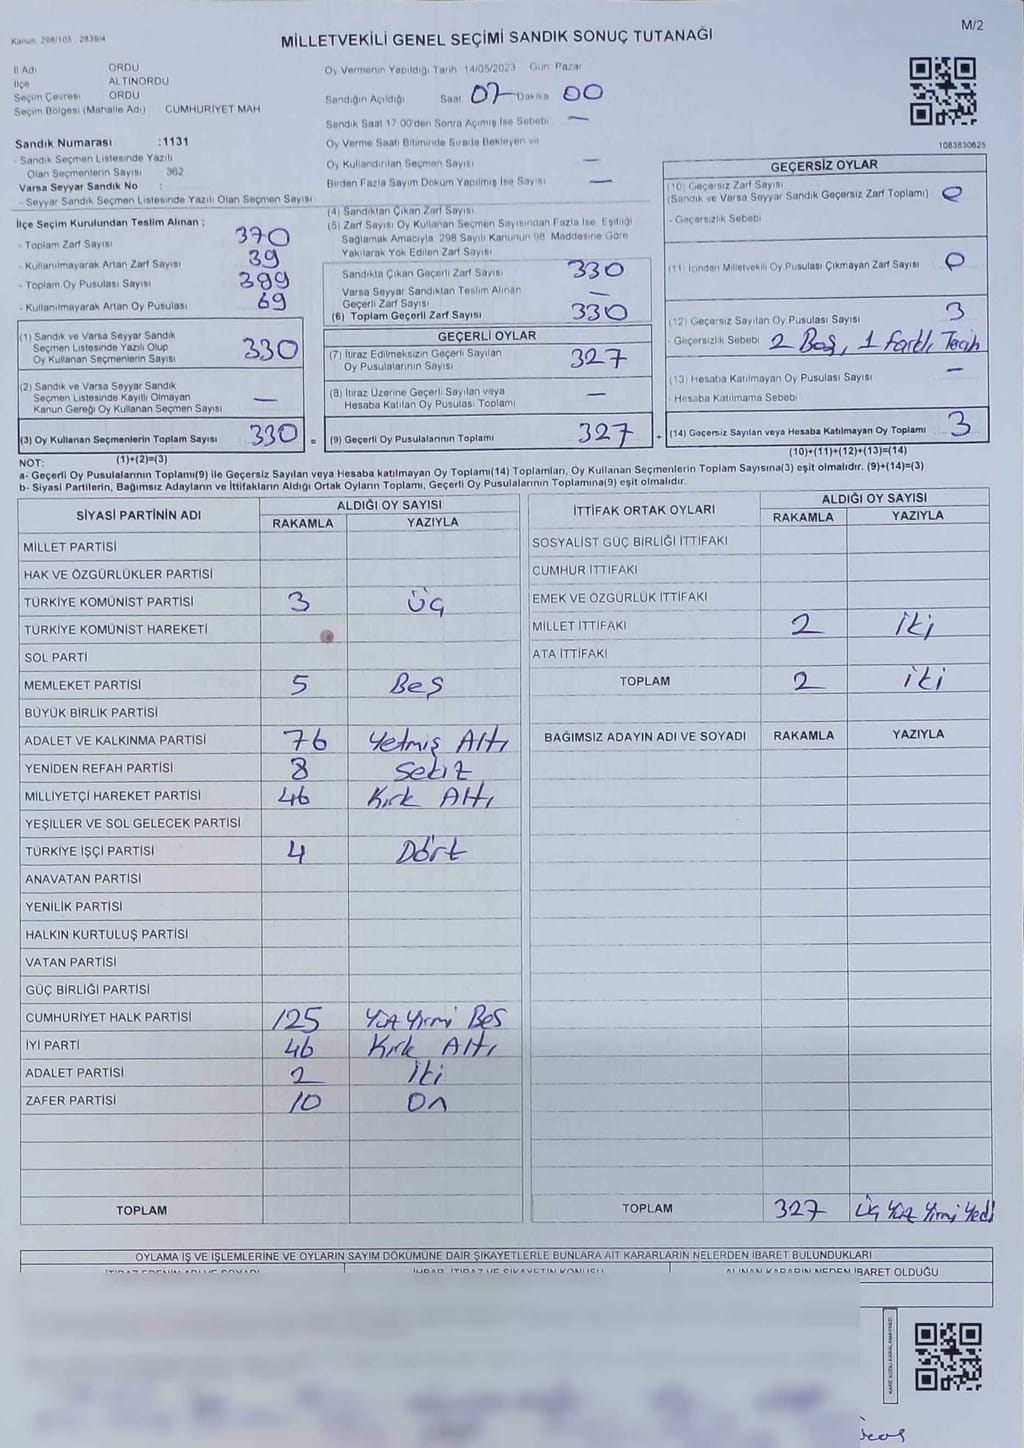 Kanun: 298/105 , 2839/4
MİLLETVEKİLİ GENEL SEÇİMİ SANDIK SONUÇ TUTANAĞI
M/2
İl Adı ORDU
İlçe ALTINORDU
Seçim Çevresi ORDU
Seçim Bölgesi (Mahalle Adı) CUMHURİYET MAH
Sandık Numarası :1131
- Sandık Seçmen Listesinde Yazılı
Olan Seçmenlerin Sayısı 362
Varsa Seyyar Sandık No :
- Seyyar Sandık Seçmen Listesinde Yazılı Olan Seçmen Sayısı
Oy Vermenin Yapıldığı Tarih 14/05/2023 Gün Pazar
Sandığın Açıldığı Saat 07 Dakika 00
Sandık Saat 17:00'den Sonra Açılmış İse Sebebi —
Oy Verme Saati Bitiminde Sırada Bekleyen ve
Oy Kullandırılan Seçmen Sayısı —
Birden Fazla Sayım Döküm Yapılmış İse Sayısı —
1083830625
İlçe Seçim Kurulundan Teslim Alınan ;
- Toplam Zarf Sayısı 370
- Kullanılmayarak Artan Zarf Sayısı 39
- Toplam Oy Pusulası Sayısı 399
- Kullanılmayarak Artan Oy Pusulası 69
(1) Sandık ve Varsa Seyyar Sandık
Seçmen Listesinde Yazılı Olup
Oy Kullanan Seçmenlerin Sayısı 330
(2) Sandık ve Varsa Seyyar Sandık
Seçmen Listesinde Kayıtlı Olmayan
Kanun Gereği Oy Kullanan Seçmen Sayısı —
(3) Oy Kullanan Seçmenlerin Toplam Sayısı 330 =
(1)+(2)=(3)
(4) Sandıktan Çıkan Zarf Sayısı
(5) Zarf Sayısı Oy Kullanan Seçmen Sayısından Fazla İse, Eşitliği
Sağlamak Amacıyla, 298 Sayılı Kanunun 98. Maddesine Göre
Yakılarak Yok Edilen Zarf Sayısı
Sandıkta Çıkan Geçerli Zarf Sayısı 330
Varsa Seyyar Sandıktan Teslim Alınan
Geçerli Zarf Sayısı —
(6) Toplam Geçerli Zarf Sayısı 330
GEÇERLİ OYLAR
(7) İtiraz Edilmeksizin Geçerli Sayılan
Oy Pusulalarının Sayısı 327
(8) İtiraz Üzerine Geçerli Sayılan veya
Hesaba Katılan Oy Pusulası Toplamı —
(9) Geçerli Oy Pusulalarının Toplamı 327 +
GEÇERSİZ OYLAR
(10) Geçersiz Zarf Sayısı
(Sandık ve Varsa Seyyar Sandık Geçersiz Zarf Toplamı) 0
- Geçersizlik Sebebi
(11) İçinden Milletvekili Oy Pusulası Çıkmayan Zarf Sayısı 0
(12) Geçersiz Sayılan Oy Pusulası Sayısı 3
- Geçersizlik Sebebi 2 Boş, 1 Farklı Tercih
(13) Hesaba Katılmayan Oy Pusulası Sayısı —
- Hesaba Katılmama Sebebi
(14) Geçersiz Sayılan veya Hesaba Katılmayan Oy Toplamı 3
(10)+(11)+(12)+(13)=(14)
NOT:
a- Geçerli Oy Pusulalarının Toplamı(9) ile Geçersiz Sayılan veya Hesaba katılmayan Oy Toplamı(14) Toplamları, Oy Kullanan Seçmenlerin Toplam Sayısına(3) eşit olmalıdır. (9)+(14)=(3)
b- Siyasi Partilerin, Bağımsız Adayların ve İttifakların Aldığı Ortak Oyların Toplamı, Geçerli Oy Pusulalarının Toplamına(9) eşit olmalıdır.
SİYASİ PARTİNİN ADI ALDIĞI OY SAYISI
RAKAMLA YAZIYLA
MİLLET PARTİSİ
HAK VE ÖZGÜRLÜKLER PARTİSİ
TÜRKİYE KOMÜNİST PARTİSİ 3 Üç
TÜRKİYE KOMÜNİST HAREKETİ
SOL PARTİ
MEMLEKET PARTİSİ 5 Beş
BÜYÜK BİRLİK PARTİSİ
ADALET VE KALKINMA PARTİSİ 76 Yetmiş Altı
YENİDEN REFAH PARTİSİ 8 Sekiz
MİLLİYETÇİ HAREKET PARTİSİ 46 Kırk Altı
YEŞİLLER VE SOL GELECEK PARTİSİ
TÜRKİYE İŞÇİ PARTİSİ 4 Dört
ANAVATAN PARTİSİ
YENİLİK PARTİSİ
HALKIN KURTULUŞ PARTİSİ
VATAN PARTİSİ
GÜÇ BİRLİĞİ PARTİSİ
CUMHURİYET HALK PARTİSİ 125 Yüz Yirmi Beş
İYİ PARTİ 46 Kırk Altı
ADALET PARTİSİ 2 İki
ZAFER PARTİSİ 10 On
TOPLAM
İTTİFAK ORTAK OYLARI ALDIĞI OY SAYISI
RAKAMLA YAZIYLA
SOSYALİST GÜÇ BİRLİĞİ İTTİFAKI
CUMHUR İTTİFAKI
EMEK VE ÖZGÜRLÜK İTTİFAKI
MİLLET İTTİFAKI 2 İki
ATA İTTİFAKI
TOPLAM 2 iki
BAĞIMSIZ ADAYIN ADI VE SOYADI RAKAMLA YAZIYLA
TOPLAM 327 Üç Yüz Yirmi Yedi
OYLAMA İŞ VE İŞLEMLERİNE VE OYLARIN SAYIM DÖKÜMÜNE DAİR ŞİKAYETLERLE BUNLARA AİT KARARLARIN NELERDEN İBARET BULUNDUKLARI
İTİRAZ EDENİN ADI VE SOYADI İHBAR, İTİRAZ VE ŞİKAYETİN KONUSU ALINAN KARARIN NEDEN İBARET OLDUĞU
KARE KODU KARALAMAYINIZ!